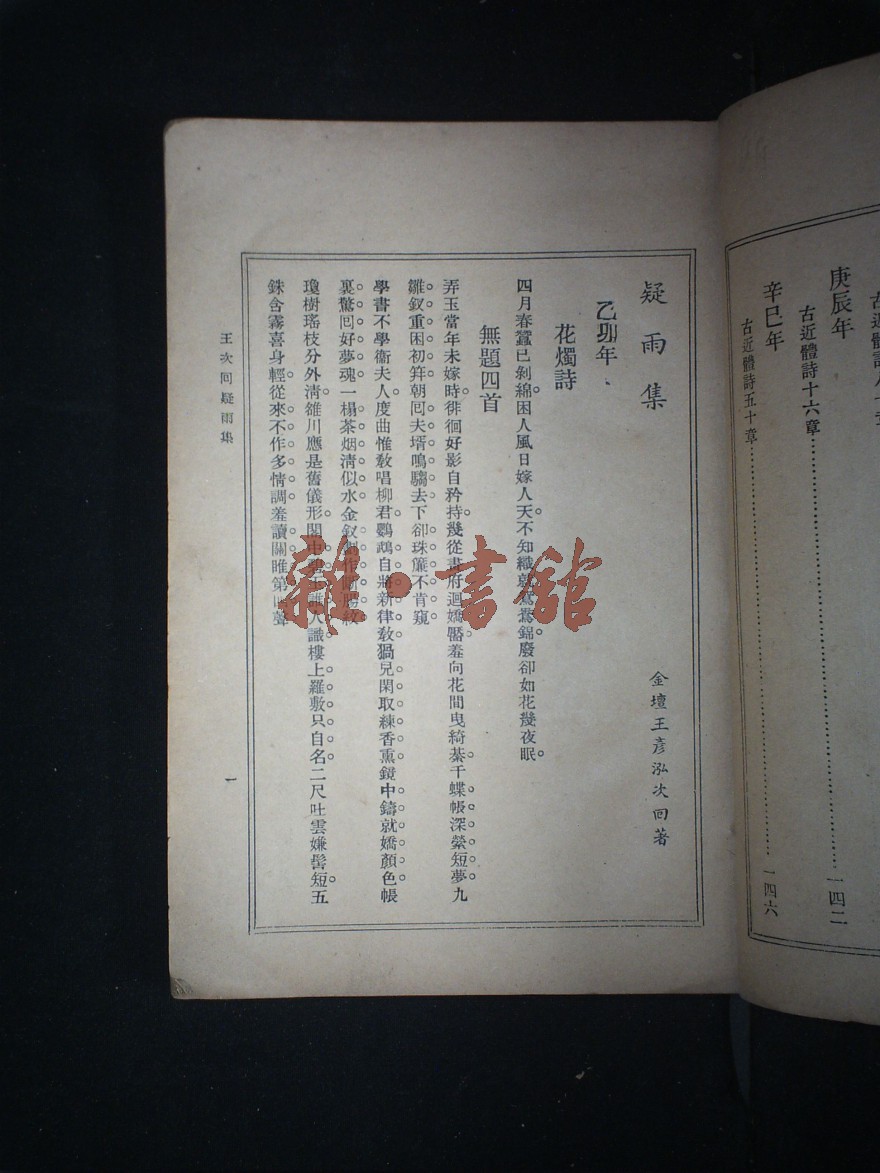 古近體詩
庚辰年
古近體詩十六章⋯⋯⋯⋯一四二
辛巳年
古近體詩五十章⋯⋯⋯⋯一四六
疑雨集
金壇王彥泓次回著
乙卯年
花燭詩
四月春蠶已剝綿。困人風日嫁人天。不知織就鴛鴦錦。廢卻如花幾夜眠。
無題四首
弄玉當年未嫁時。徘徊好影自矜持。幾從畫府迴嬌靨。羞向花間曳綺綦。千蝶帳深縈短夢。九
雛釵重困初笄。朝回夫壻鳴騶去。下卻珠簾不肯窺。
學書不學衞夫人。度曲惟敎唱柳君。鸚鵡自將新律敎。猧兒閑取練香熏。鏡中鑄就嬌顏色。帳
裏驚回好夢魂。一榻茶烟淸似水。金釵
瓊樹瑤枝分外淸。雒川應是舊儀形。閣中 人識。樓上羅敷只自名。二尺吐雲嫌髻短。五
銖含霧喜身輕。從來不作多情調。羞讀關雎第
王次回疑雨集
一
雜·書館